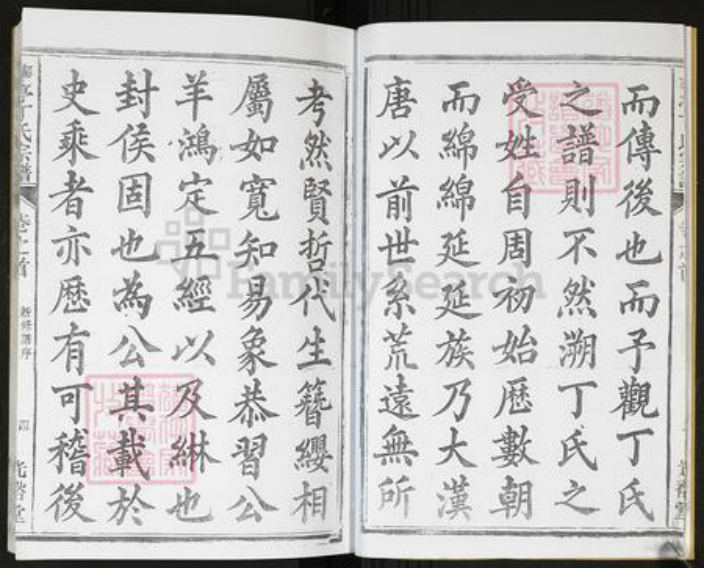 而傳後也而予觀丁氏
之譜則不然溯丁氏之
受姓自周初始歷數朝
而綿綿延延族乃大漢
唐以前世系荒遠無所
考然賢哲代生簪纓相
屬如寬知易象恭習公
羊鴻定五經以及綝也
封侯固也為公其載於
史乘者亦歷有可稽後
丁氏宗譜
卷之首
新修譜序
四
光裕堂
FamilySearch